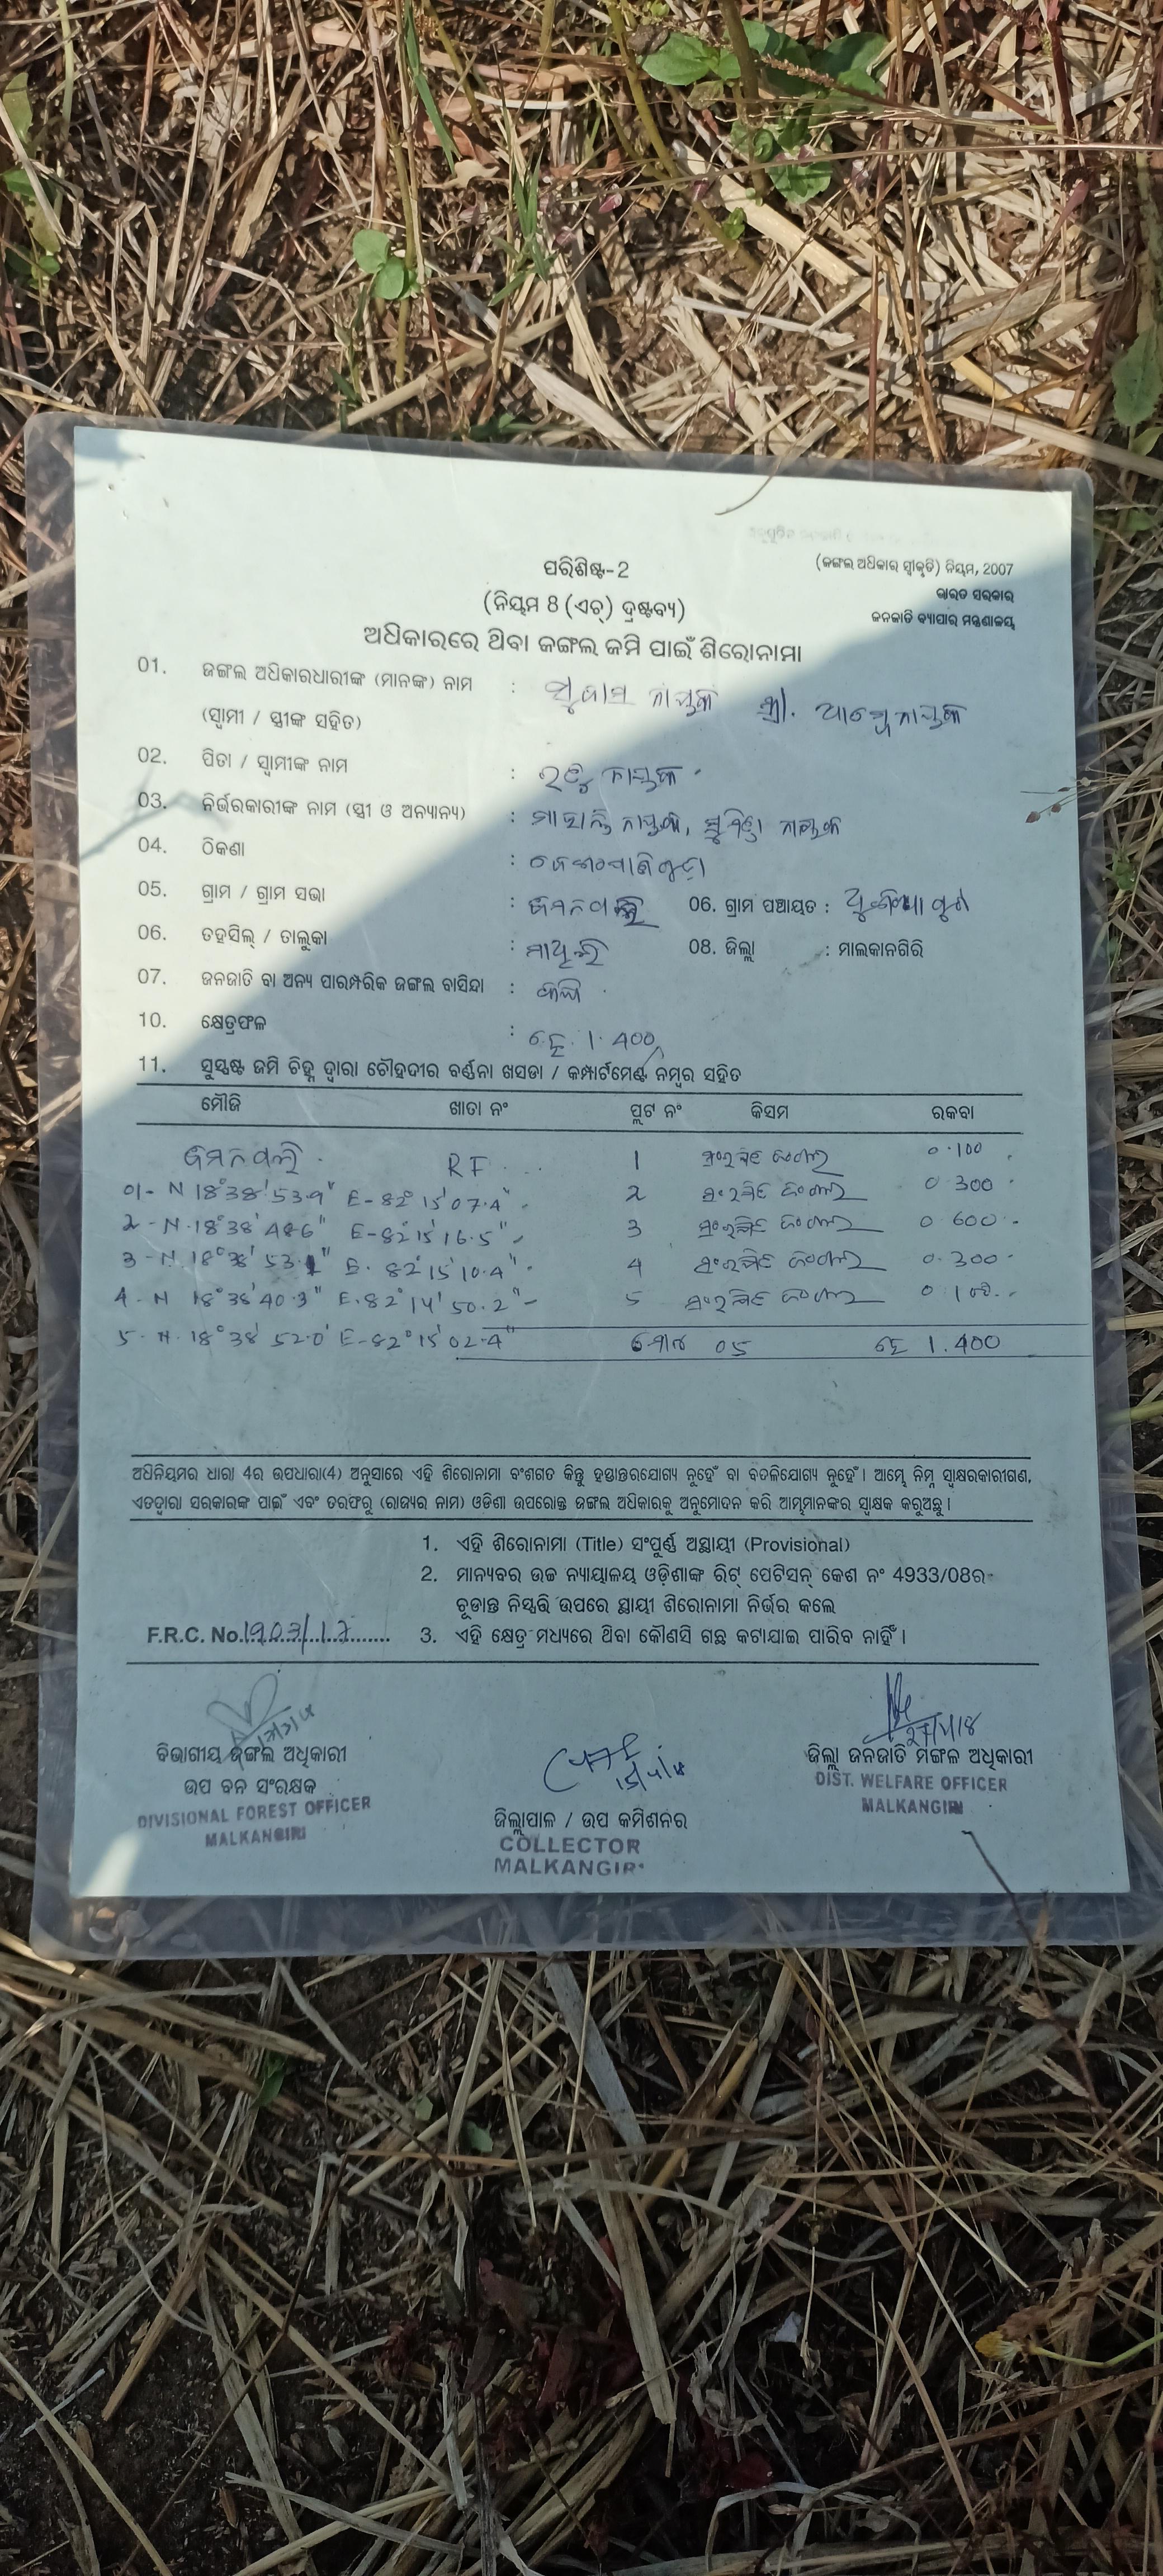 ପରିଶିଷ୍ଟ-2
(ଜଙ୍ଗଲ ଅଧିକାର ସ୍ୱୀକୃତି) ନିୟମ, 2007
(ନିୟମ 8 (ଏଚ୍) ଦ୍ରଷ୍ଟବ୍ୟ)
ଭାରତ ସରକାର
ଜନଜାତି ବ୍ୟାପାର ମନ୍ତ୍ରଣାଳୟ
ଅଧିକାରରେ ଥିବା ଜଙ୍ଗଲ ଜମି ପାଇଁ ଶିରୋନାମା
01. ଜଙ୍ଗଲ ଅଧିକାରଧାରୀଙ୍କ (ମାନଙ୍କ) ନାମ : ନାୟକ ସ୍ତ୍ରୀ.
(ସ୍ୱାମୀ / ସ୍ତ୍ରୀଙ୍କ ସହିତ)
02. ପିତା / ସ୍ୱାମୀଙ୍କ ନାମ : ନାୟକ
03. ନିର୍ଭରକାରୀଙ୍କ ନାମ (ସ୍ତ୍ରୀ ଓ ଅନ୍ୟାନ୍ୟ) : ନାୟକ, ନାୟକ
04. ଠିକଣା :
05. ଗ୍ରାମ / ଗ୍ରାମ ସଭା : 06. ଗ୍ରାମ ପଞ୍ଚାୟତ :
06. ତହସିଲ୍ / ତାଲୁକା : ମାଥିଲି 08. ଜିଲ୍ଲା : ମାଲକାନଗିରି
07. ଜନଜାତି ବା ଅନ୍ୟ ପାରମ୍ପରିକ ଜଙ୍ଗଲ ବାସିନ୍ଦା :
10. କ୍ଷେତ୍ରଫଳ : ହେ. 1.400
11. ସୁସ୍ପଷ୍ଟ ଜମି ଚିହ୍ନ ଦ୍ୱାରା ଚୌହଦୀର ବର୍ଣ୍ଣନା ଖସଡା / କମ୍ପାର୍ଟମେଣ୍ଟ ନମ୍ବର ସହିତ
ମୌଜି ଖାତା ନଂ ପ୍ଲଟ ନଂ କିସମ ରକବା
RF 1 ସଂରକ୍ଷିତ ଜଙ୍ଗଲ 0.100
01- N 18°38'53.9" E-82°15'07.4" 2 ସଂରକ୍ଷିତ ଜଙ୍ଗଲ 0.300
2-N.18°38'48.6" E-82°15'16.5" 3 ସଂରକ୍ଷିତ ଜଙ୍ଗଲ 0.600
3-N.18°38'53.1" E.82°15'10.4" 4 ସଂରକ୍ଷିତ ଜଙ୍ଗଲ 0.300
4-N 18°38'40.3" E.82°14'50.2" 5 ସଂରକ୍ଷିତ ଜଙ୍ଗଲ 0.100
5-N.18°38'52.0" E-82°15'02.4" ମୋଟ 05 ହେ 1.400
ଅଧିନିୟମର ଧାରା 4ର ଉପଧାରା(4) ଅନୁସାରେ ଏହି ଶିରୋନାମା ବଂଶଗତ କିନ୍ତୁ ହସ୍ତାନ୍ତରଯୋଗ୍ୟ ନୁହେଁ ବା ବଦଳିଯୋଗ୍ୟ ନୁହେଁ। ଆମ୍ଭେ ନିମ୍ନ ସ୍ୱାକ୍ଷରକାରୀଗଣ,
ଏତଦ୍ୱାରା ସରକାରଙ୍କ ପାଇଁ ଏବଂ ତରଫରୁ (ରାଜ୍ୟର ନାମ) ଓଡିଶା ଉପରୋକ୍ତ ଜଙ୍ଗଲ ଅଧିକାରକୁ ଅନୁମୋଦନ କରି ଆମ୍ଭମାନଙ୍କର ସ୍ୱାକ୍ଷକ କରୁଅଛୁ।
1. ଏହି ଶିରୋନାମା (Title) ସଂପୂର୍ଣ୍ଣ ଅସ୍ଥାୟୀ (Provisional)
2. ମାନ୍ୟବର ଉଚ୍ଚ ନ୍ୟାୟାଳୟ ଓଡ଼ିଶାଙ୍କ ରିଟ୍ ପେଟିସନ୍ କେଶ ନଂ 4933/08ର
ଚୂଡାନ୍ତ ନିସ୍ପତ୍ତି ଉପରେ ସ୍ଥାୟୀ ଶିରୋନାମା ନିର୍ଭର କଲେ
F.R.C. No.1903/17 3. ଏହି କ୍ଷେତ୍ର ମଧ୍ୟରେ ଥିବା କୌଣସି ଗଛ କଟାଯାଇ ପାରିବ ନାହିଁ।
27/1/18
ବିଭାଗୀୟ ଜଙ୍ଗଲ ଅଧିକାରୀ
ଉପ ବନ ସଂରକ୍ଷକ
DIVISIONAL FOREST OFFICER
MALKANGIRI
ଜିଲ୍ଲାପାଳ / ଉପ କମିଶନର
COLLECTOR
MALKANGIRI
ଜିଲ୍ଲା ଜନଜାତି ମଙ୍ଗଳ ଅଧିକାରୀ
DIST. WELFARE OFFICER
MALKANGIRI